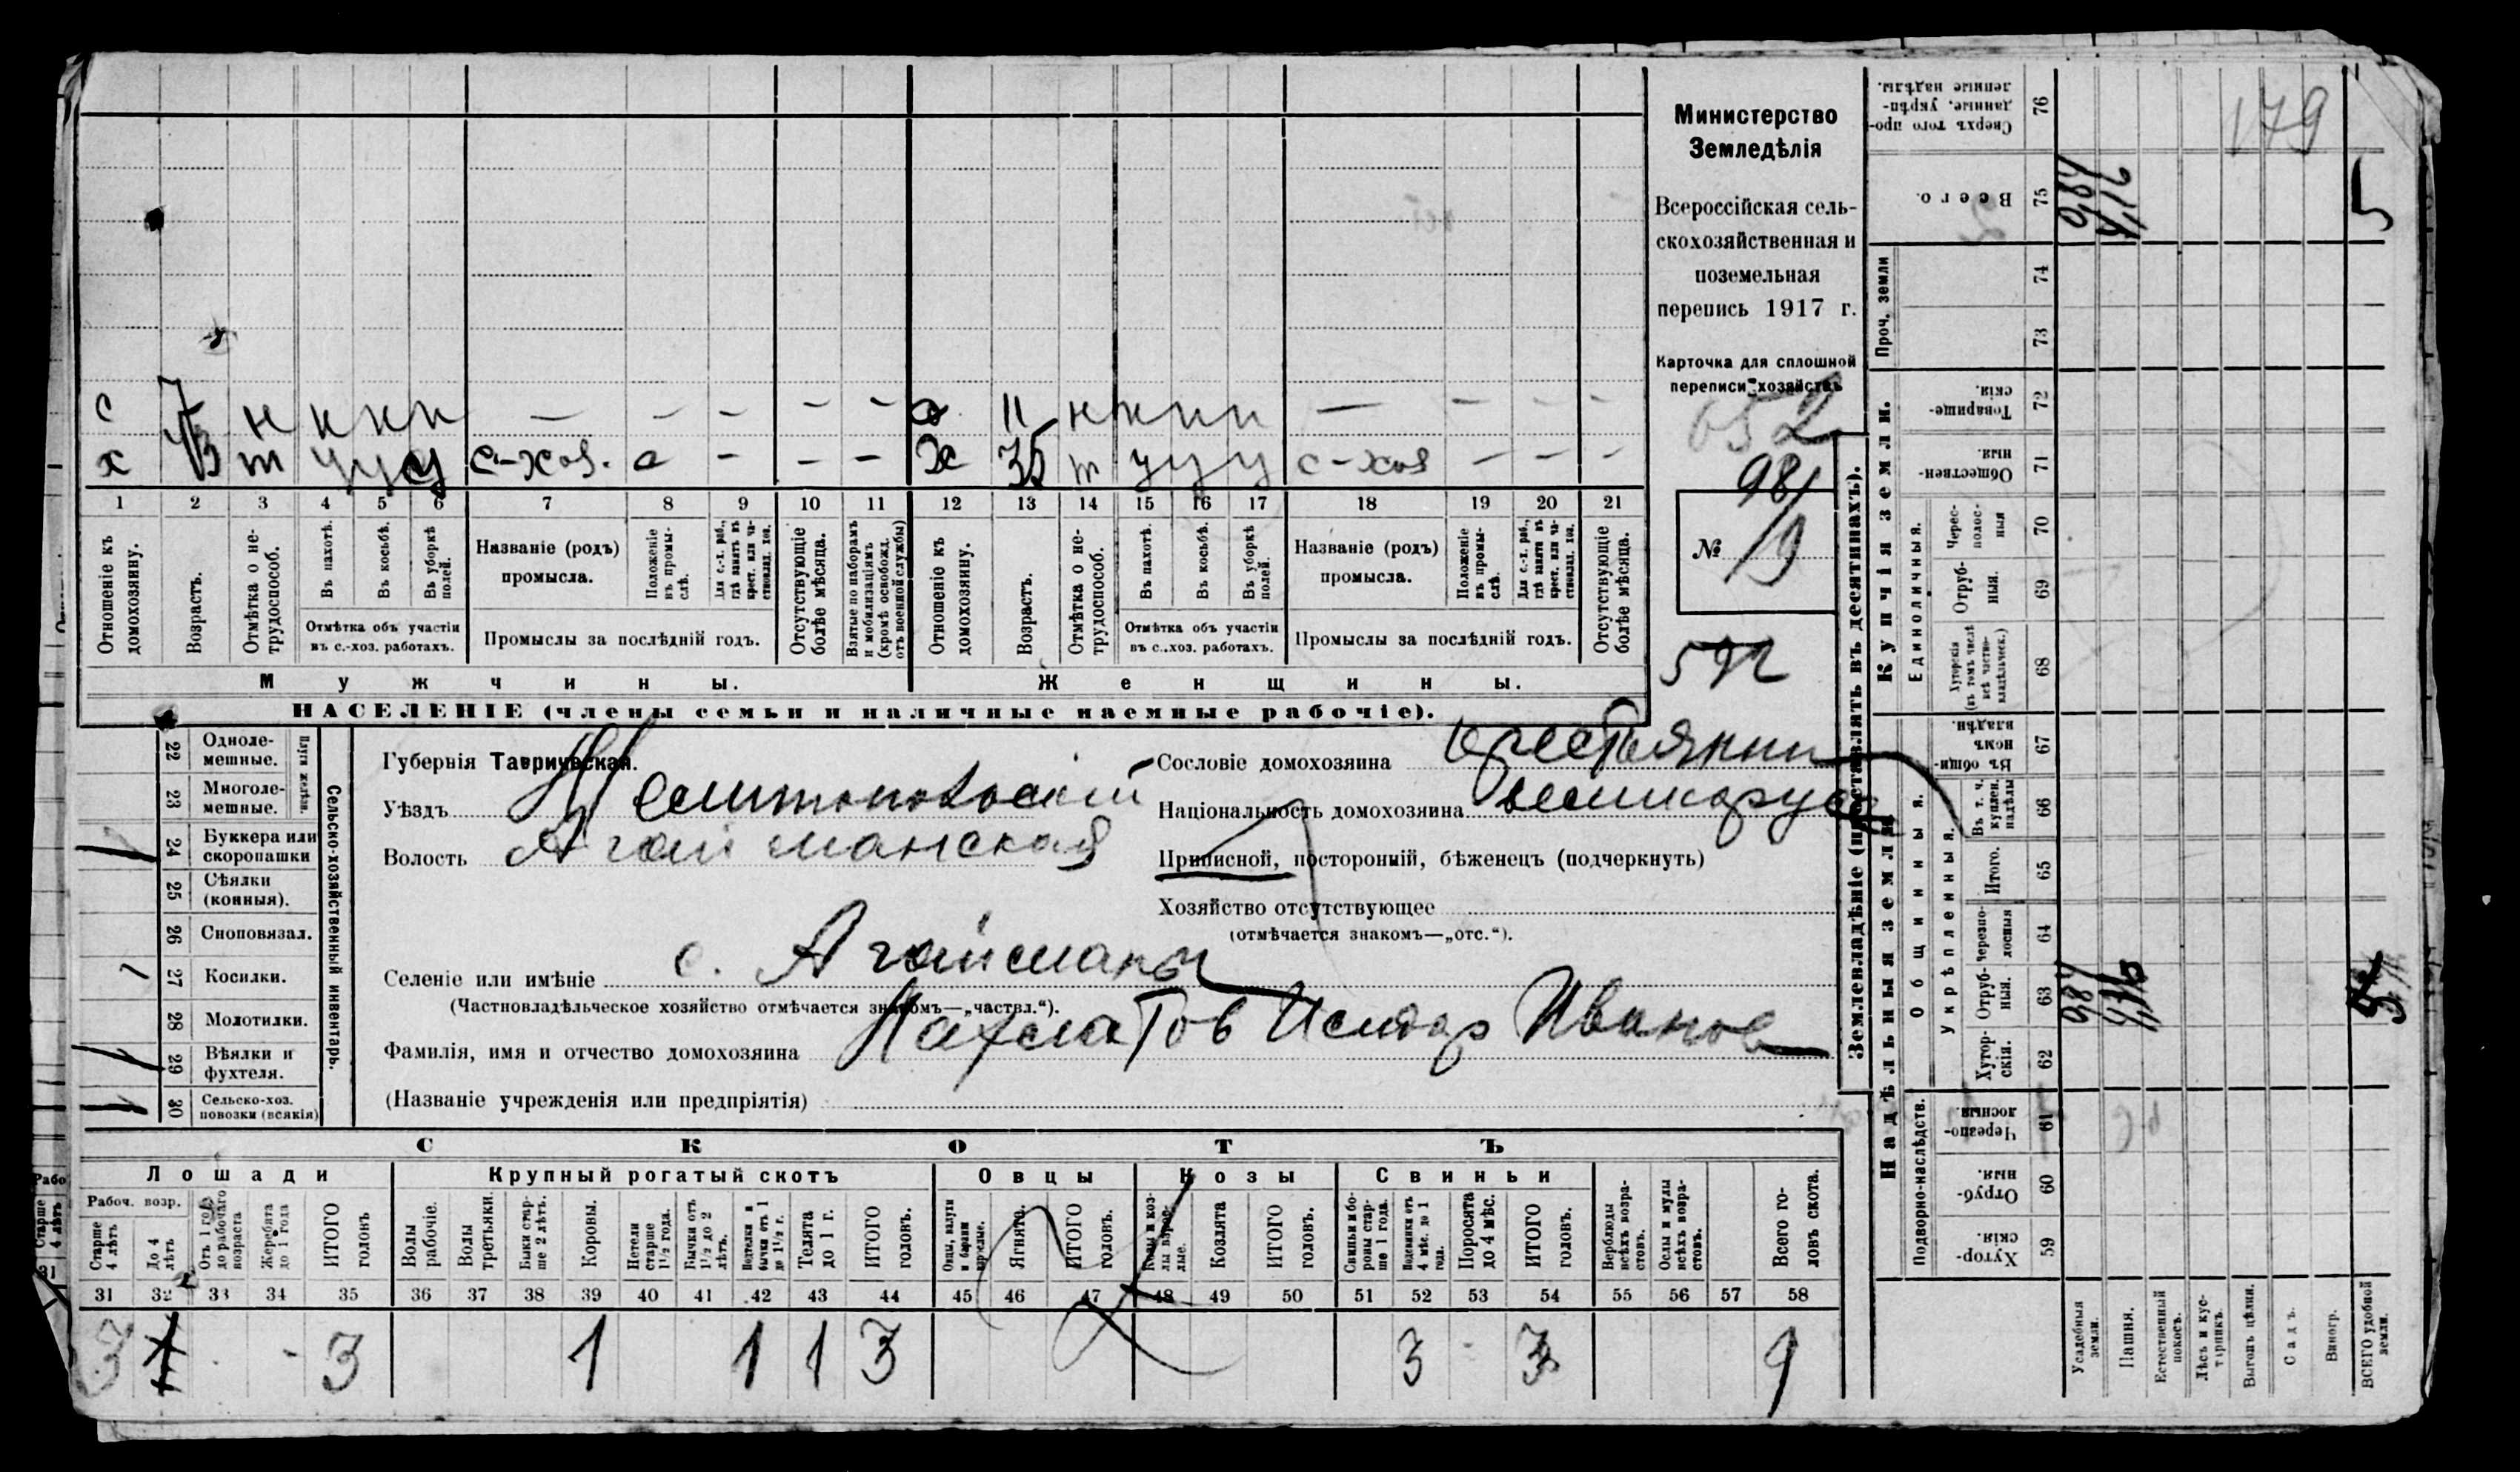 Министерство
Земледѣлія
Всероссійская сель-
скохозяйственная и
поземельная
перепись 1917 г.
Карточка для сплошной
переписи хозяйствъ
652
981
№ 19
592
179
с 7 н н н н — — — — —
х т у у у с-хоз. с — — —
11 н н н н — — — —
х 35 т у у у с-хоз — — —
1 2 3 4 5 6 7 8 9 10 11 12 13 14 15 16 17 18 19 20 21
Отношеніе къ домохозяину.
Возрастъ.
Отмѣтка о не-трудоспособ.
Въ пахотѣ.
Въ косьбѣ.
Въ уборкѣ полей.
Отмѣтка объ участіи въ с.-хоз. работахъ.
Названіе (родъ) промысла.
Положеніе въ промы-слѣ.
Для с.-х. раб., гдѣ занятъ въ крест. или ча-стновлад. хоз.
Промыслы за послѣдній годъ.
Отсутствующіе болѣе мѣсяца.
Взятые по наборамъ и мобилизаціямъ (кромѣ освобожд. отъ военной службы)
Отношеніе къ домохозяину.
Возрастъ.
Отмѣтка о не-трудоспособ.
Въ пахотѣ.
Въ косьбѣ.
Въ уборкѣ полей.
Отмѣтка объ участіи въ с.-хоз. работахъ.
Названіе (родъ) промысла.
Положеніе въ промы-слѣ.
Для с.-х. раб., гдѣ занята въ крест. или ча-стновлад. хоз.
Промыслы за послѣдній годъ.
Отсутствующіе болѣе мѣсяца.
Мужчины. Женщины.
НАСЕЛЕНІЕ (члены семьи и наличные наемные рабочіе).
Сельско-хозяйственный инвентарь.
Плуги желѣзн.
22 Одноле-мешные.
23 Многоле-мешные.
24 Буккера или скоропашки
25 Сѣялки (конныя).
26 Сноповязал.
27 Косилки.
28 Молотилки.
29 Вѣялки и фухтеля.
30 Сельско-хоз. повозки (всякія)
Губернія Таврическая.
Уѣздъ Мелитопольскій
Волость Агайманская
Селеніе или имѣніе с. Агайманы
(Частновладѣльческое хозяйство отмѣчается знакомъ—„частвл.“).
Фамилія, имя и отчество домохозяина Исидор Иванов
(Названіе учрежденія или предпріятія)
Сословіе домохозяина крестьянин
Національность домохозяина великорус
Приписной, посторонній, бѣженецъ (подчеркнуть)
Хозяйство отсутствующее
(отмѣчается знакомъ—„отс.“).
СКОТЪ
Лошади Крупный рогатый скотъ Овцы Козы Свиньи
Рабоч. возр.
Старше 4 лѣтъ
До 4 лѣтъ
Отъ 1 года до рабочаго возраста
Жеребята до 1 года
ИТОГО головъ
Волы рабочіе.
Волы третьяки.
Быки стар-ше 2 лѣтъ.
Коровы.
Нетели старше 1½ года.
Бычки отъ 1½ до 2 лѣтъ.
Подтелки и бычки отъ 1 до 1½ г.
Телята до 1 г.
ИТОГО головъ.
Овцы, валухи и бараны взрослые.
Ягнята.
ИТОГО головъ.
Козы и коз-лы взрос-лые.
Козлята
ИТОГО головъ.
Свиньи и бо-ровы стар-ше 1 года.
Подсвинки отъ 4 мѣс. до 1 года.
Поросята до 4 мѣс.
ИТОГО головъ.
Верблюды всѣхъ возра-стовъ.
Ослы и мулы всѣхъ возра-стовъ.
Всего го-ловъ скота.
31 32 33 34 35 36 37 38 39 40 41 42 43 44 45 46 47 48 49 50 51 52 53 54 55 56 57 58
3 3 1 1 1 3 3 3 9
Землевладѣніе (проставлять въ десятинахъ).
Надѣльныя земли
Купчія земли.
Проч. земли
Подворно-наслѣдств.
Общинныя.
Укрѣпленныя.
Единоличныя.
59 Хутор-скія.
60 Отруб-ныя.
61 Черезпо-лосныя
62 Хутор-скія.
63 Отруб-ныя.
64 Черезпо-лосныя
65 Итого.
66 Въ т. ч. куплен. надѣлы
67 Въ общин-номъ владѣн.
68 Хуторскія (въ томъ числѣ всѣ частно-владѣльческ.)
69 Отруб-ныя.
70 Черес-полос-ныя
71 Обществен-ныя.
72 Товарище-скія.
73
74
75 Всего.
76 Сверхъ того про-данные, укрѣп-ленные надѣлы.
Усадебныя земли.
Пашня.
Естественный покосъ.
Лѣсъ и кус-тарникъ.
Выгонъ цѣлин.
Садъ.
Виногр.
ВСЕГО удобной земли.
4,16
5
Старше 4 лѣтъ
31